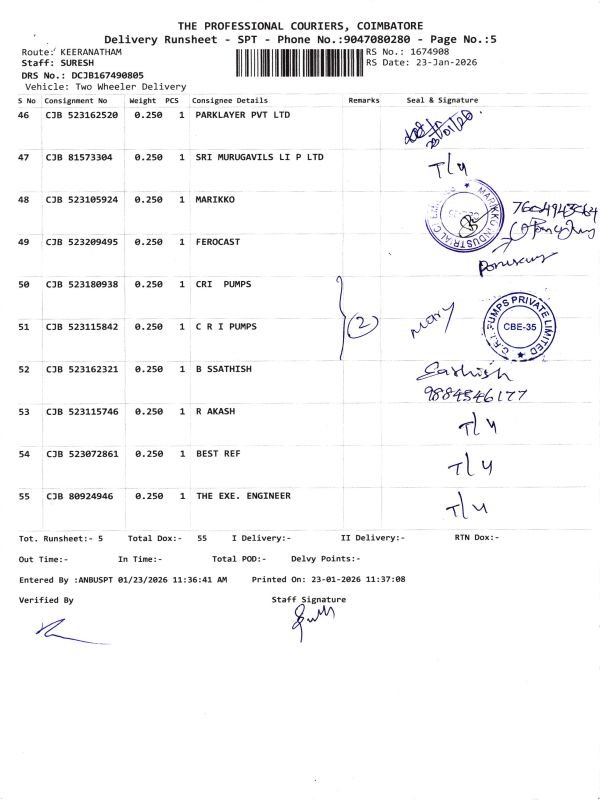 THE PROFESSIONAL COURIERS, COIMBATORE
Delivery Runsheet - SPT - Phone No.:9047080280 - Page No.:5
Route: KEERANATHAM RS No.: 1674908
Staff: SURESH RS Date: 23-Jan-2026
DRS No.: DCJB167490805
Vehicle: Two Wheeler Delivery
S No Consignment No Weight PCS Consignee Details Remarks Seal & Signature
46 CJB 523162520 0.250 1 PARKLAYER PVT LTD
47 CJB 81573304 0.250 1 SRI MURUGAVILS LI P LTD T/4
48 CJB 523105924 0.250 1 MARIKKO MARIKKO INDUSTRIAL
49 CJB 523209495 0.250 1 FEROCAST
50 CJB 523180938 0.250 1 CRI PUMPS
(2) mary C.R.I. PUMPS PRIVATE LIMITED CBE-35
51 CJB 523115842 0.250 1 C R I PUMPS
52 CJB 523162321 0.250 1 B SSATHISH Sathish
9884546177
53 CJB 523115746 0.250 1 R AKASH T/4
54 CJB 523072861 0.250 1 BEST REF T/4
55 CJB 80924946 0.250 1 THE EXE. ENGINEER T/4
Tot. Runsheet:- 5 Total Dox:- 55 I Delivery:- II Delivery:- RTN Dox:-
Out Time:- In Time:- Total POD:- Delvy Points:-
Entered By :ANBUSPT 01/23/2026 11:36:41 AM Printed On: 23-01-2026 11:37:08
Verified By Staff Signature